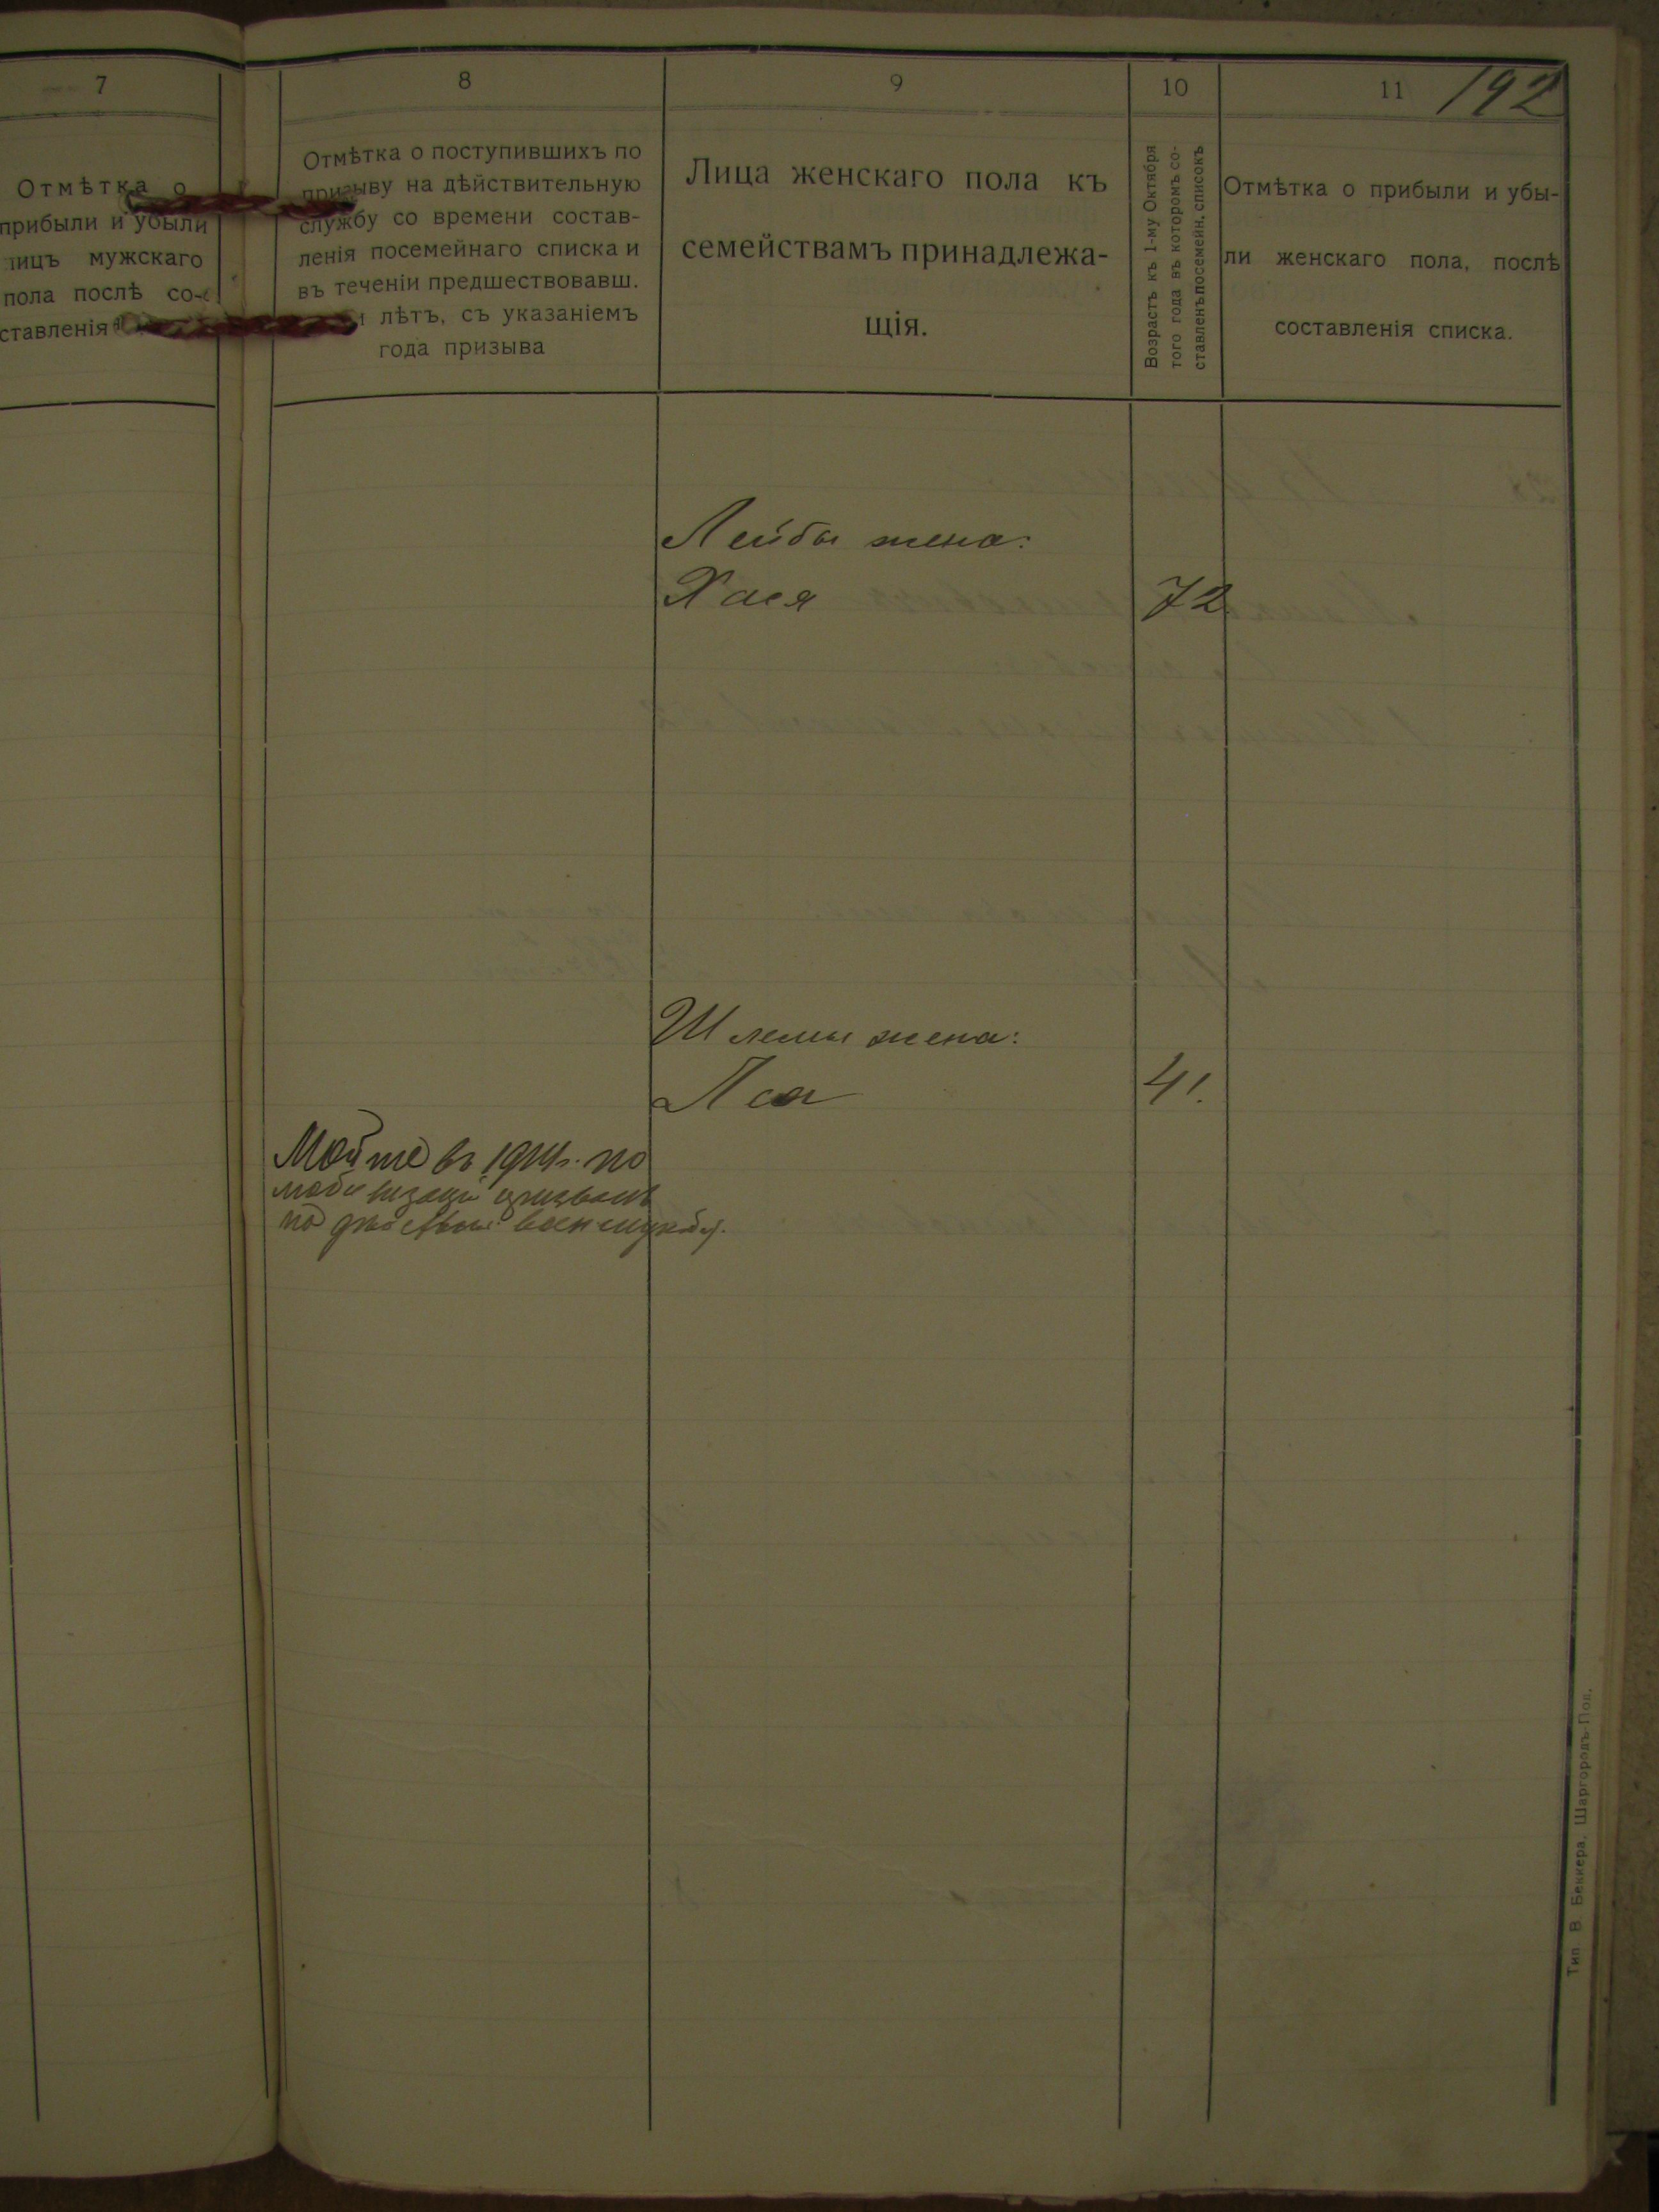 192
7
8
9
10
11
Отмѣтка о
прибыли и убыли
лицъ мужскаго
пола послѣ со-
ставленія
Отмѣтка о поступившихъ по
призыву на дѣйствительную
службу со времени состав-
ленія посемейнаго списка и
въ теченіи предшествовавш.
лѣтъ, съ указаніемъ
года призыва
Лица женскаго пола къ
семействамъ принадлежа-
щія.
Возрастъ къ 1-му Октября
того года въ которомъ со-
ставленъ посемейн. списокъ
Отмѣтка о прибыли и убы-
ли женскаго пола, послѣ
составленія списка.
Лейбы жена:
Хася 72
Шлемы жена:
41.
въ 1914 г. по
призванъ
Тип В. Беккера, Шаргородъ-Под.